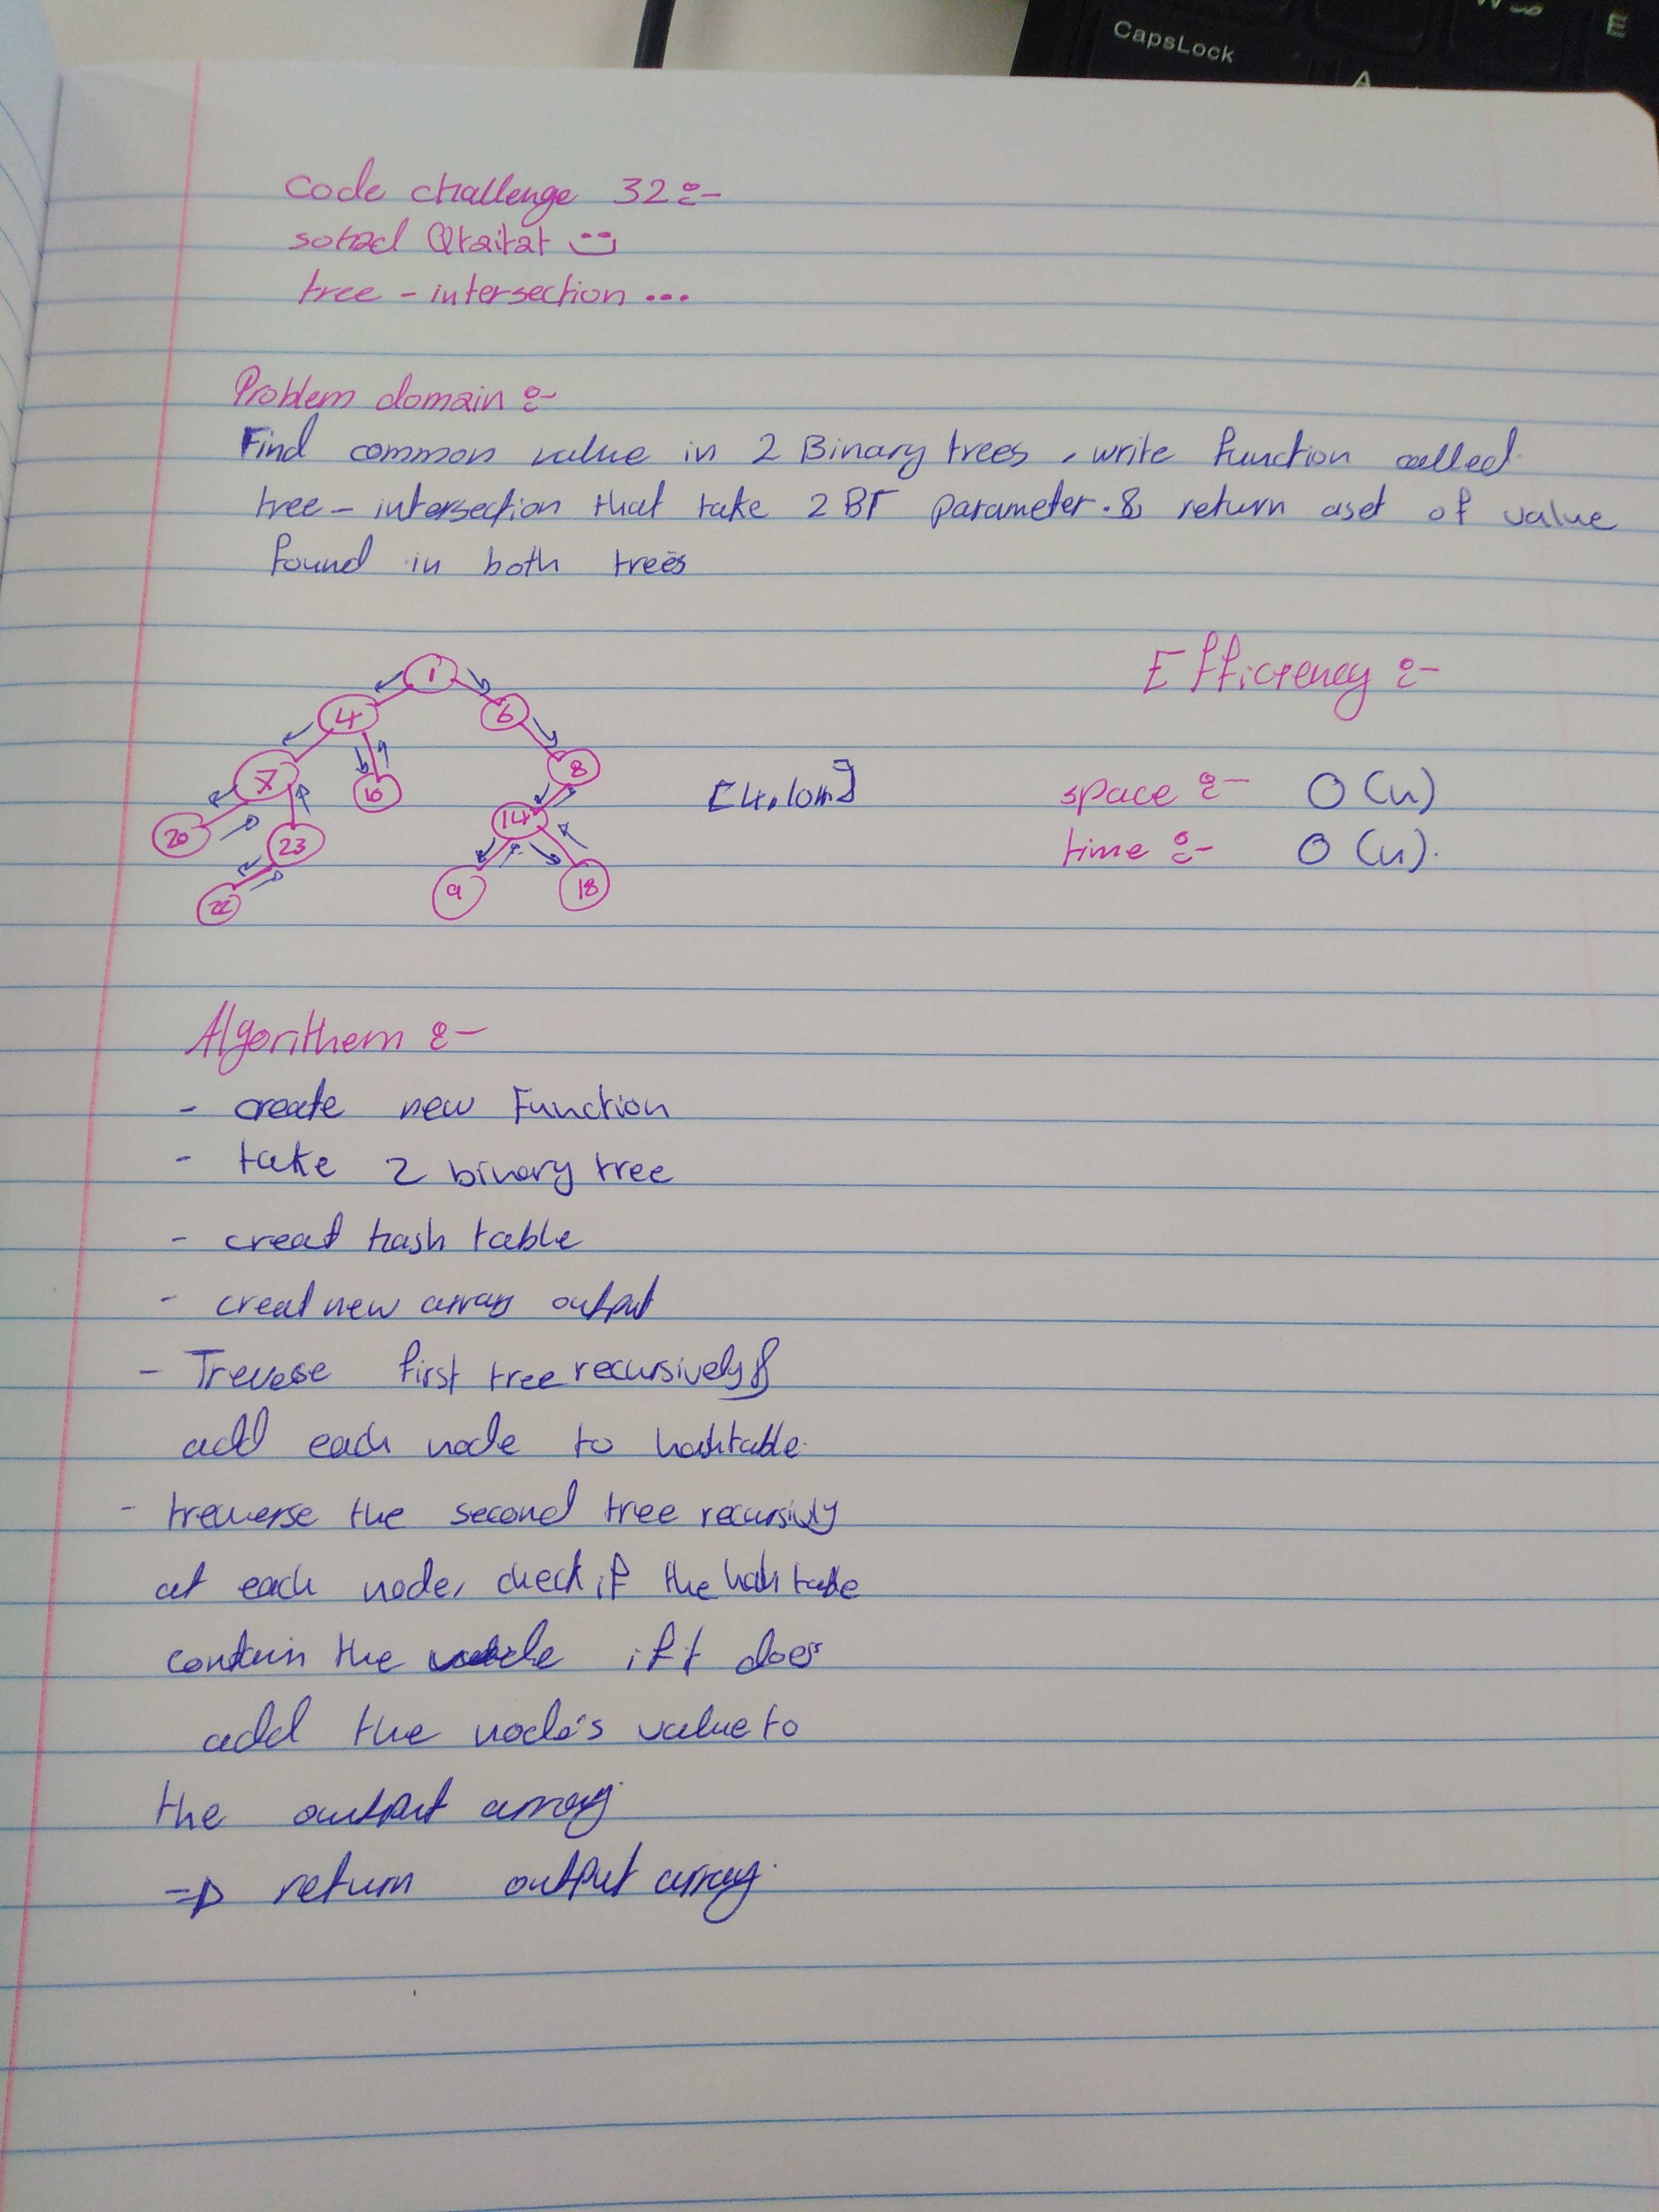 CapsLock
A
W
E
Code challenge 32:-
Qtaitat
tree - intersection ...
Problem domain :-
Find common value in 2 Binary trees, write function called
tree - intersection that take 2 BT parameter. & return aset of value
found in both trees
Efficiency :-
1
4 6
7 8
16
20 14
23
9 18
22
space :- O(n)
time :- O(n).
Algorithem :-
- create new Function
- take 2 binary tree
- creat hash table
- creat new array output
- Treverse first tree recursively &
add each node to hashtable.
- treverse the second tree recursivly
at each node, check if the hash table
contain the if it does
add the node's value to
the output array.
=> return output array.